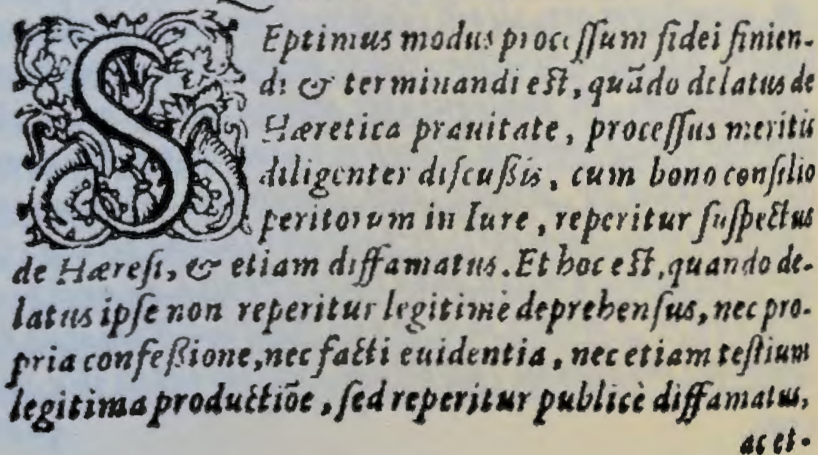 SEptimus modus processum fidei finien-
di & terminandi est, quãdo delatus de
Hæretica prauitate, processus meritis
diligenter discussis, cum bono consilio
peritorum in Iure, reperitur suspectus
de Hæresi, & etiam diffamatus. Et hoc est, quando de-
latus ipse non reperitur legitimè deprehensus, nec pro-
pria confessione, nec facti euidentia, nec etiam testium
legitima productiõe, sed reperitur publicè diffamatus,
ac et-